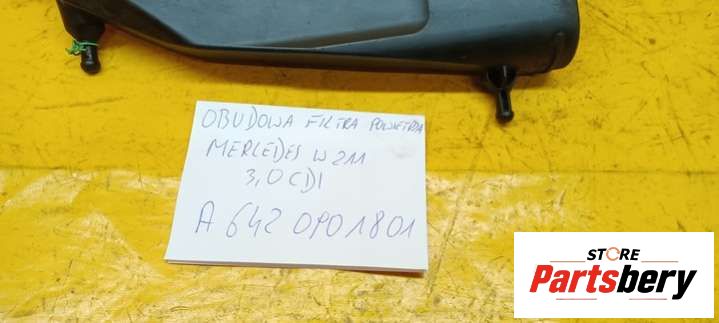 OBUDOWA FILTRA POWIETRZA
MERCEDES W211
3,0 CDI
A 642 0901801
STORE
Partsbery